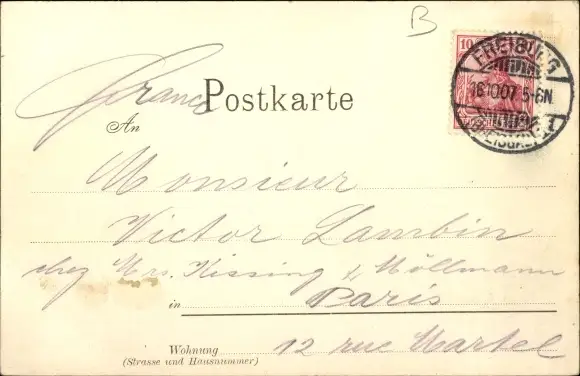 B
10
FREIBURG
16.10.07.5-6N.
France
Postkarte
An
Monsieur
Victor Lambin
chez Mrs. Kissing & Möllmann
in Paris
Wohnung 12 rue Martel
(Strasse und Hausnummer)